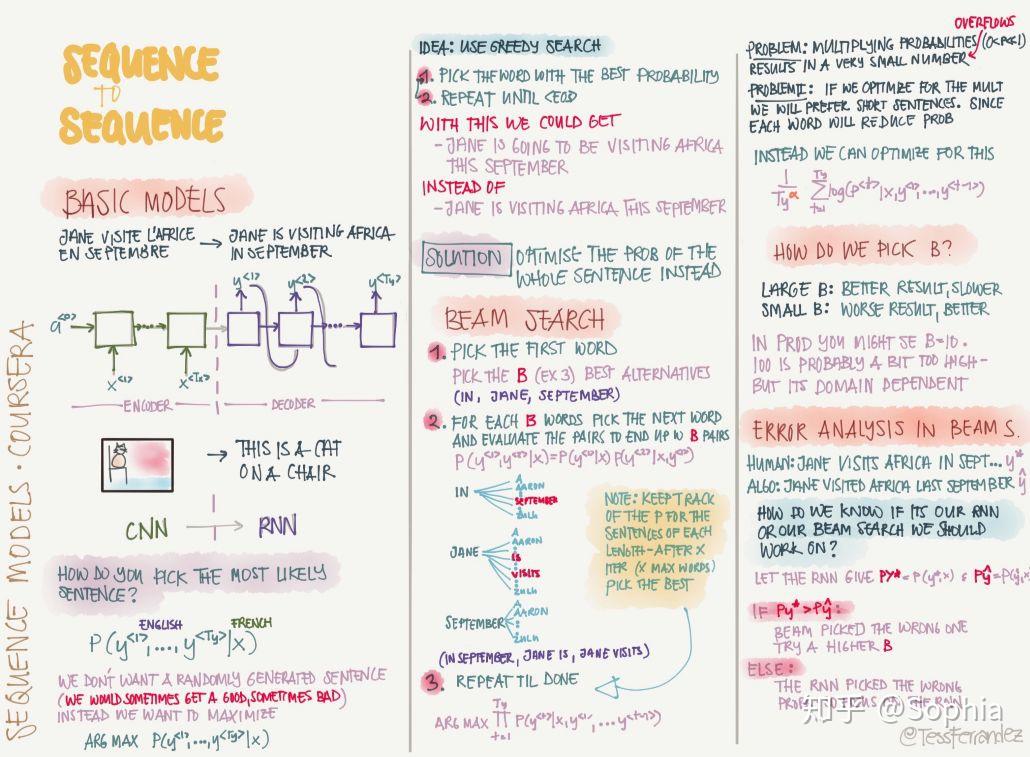 SEQUENCE
TO
SEQUENCE
BASIC MODELS
JANE VISITE L'AFRICE
EN SEPTEMBRE
JANE IS VISITING AFRICA
IN SEPTEMBER
a<0>
x<1>
x<Tx>
y<1>
y<2>
y<Ty>
ENCODER
DECODER
THIS IS A CAT
ON A CHAIR
CNN
RNN
HOW DO YOU PICK THE MOST LIKELY
SENTENCE?
ENGLISH
FRENCH
P(y<1>,...,y<Ty>|x)
WE DON'T WANT A RANDOMLY GENERATED SENTENCE
(WE WOULD SOMETIMES GET A GOOD, SOMETIMES BAD)
INSTEAD WE WANT TO MAXIMIZE
ARG MAX P(y<1>,...,y<Ty>|x)
SEQUENCE MODELS · COURSERA
IDEA: USE GREEDY SEARCH
1. PICK THE WORD WITH THE BEST PROBABILITY
2. REPEAT UNTIL <EOS>
WITH THIS WE COULD GET
- JANE IS GOING TO BE VISITING AFRICA
THIS SEPTEMBER
INSTEAD OF
- JANE IS VISITING AFRICA THIS SEPTEMBER
SOLUTION
OPTIMISE THE PROB OF THE
WHOLE SENTENCE INSTEAD
BEAM SEARCH
1. PICK THE FIRST WORD
PICK THE B (EX 3) BEST ALTERNATIVES
(IN, JANE, SEPTEMBER)
2. FOR EACH B WORDS PICK THE NEXT WORD
AND EVALUATE THE PAIRS TO END UP W B PAIRS
P(y<1>,y<2>|x)=P(y<1>|x) P(y<2>|x,y<1>)
IN
A
AARON
SEPTEMBER
ZULU
JANE
A
AARON
IS
VISITS
ZULU
SEPTEMBER
A
AARON
ZULU
NOTE: KEEP TRACK
OF THE P FOR THE
SENTENCES OF EACH
LENGTH - AFTER X
ITER (X MAX WORDS)
PICK THE BEST
(IN SEPTEMBER, JANE IS, JANE VISITS)
3. REPEAT TIL DONE
ARG MAX Ty ∏ t=1 P(y<t>|x,y<1>,...y<t-1>)
OVERFLOWS
PROBLEM: MULTIPLYING PROBABILITIES (0<P≪1)
RESULTS IN A VERY SMALL NUMBER
PROBLEM II: IF WE OPTIMIZE FOR THE MULT
WE WILL PREFER SHORT SENTENCES. SINCE
EACH WORD WILL REDUCE PROB
INSTEAD WE CAN OPTIMIZE FOR THIS
1/Ty^α Ty ∑ t=1 log(P<t>|x,y<1>,...,y<t-1>)
HOW DO WE PICK B?
LARGE B: BETTER RESULT, SLOWER
SMALL B: WORSE RESULT, BETTER
IN PROD YOU MIGHT SE B=10.
100 IS PROBABLY A BIT TOO HIGH -
BUT ITS DOMAIN DEPENDENT
ERROR ANALYSIS IN BEAM S.
HUMAN: JANE VISITS AFRICA IN SEPT... y*
ALGO: JANE VISITED AFRICA LAST SEPTEMBER ŷ
HOW DO WE KNOW IF ITS OUR RNN
OR OUR BEAM SEARCH WE SHOULD
WORK ON?
LET THE RNN GIVE Py*=P(y*,x) & Pŷ=P(ŷ,x)
IF Py*>Pŷ:
BEAM PICKED THE WRONG ONE
TRY A HIGHER B
ELSE:
THE RNN PICKED THE WRONG
THE RNN
知乎 @Sophia
@TessFerrandez